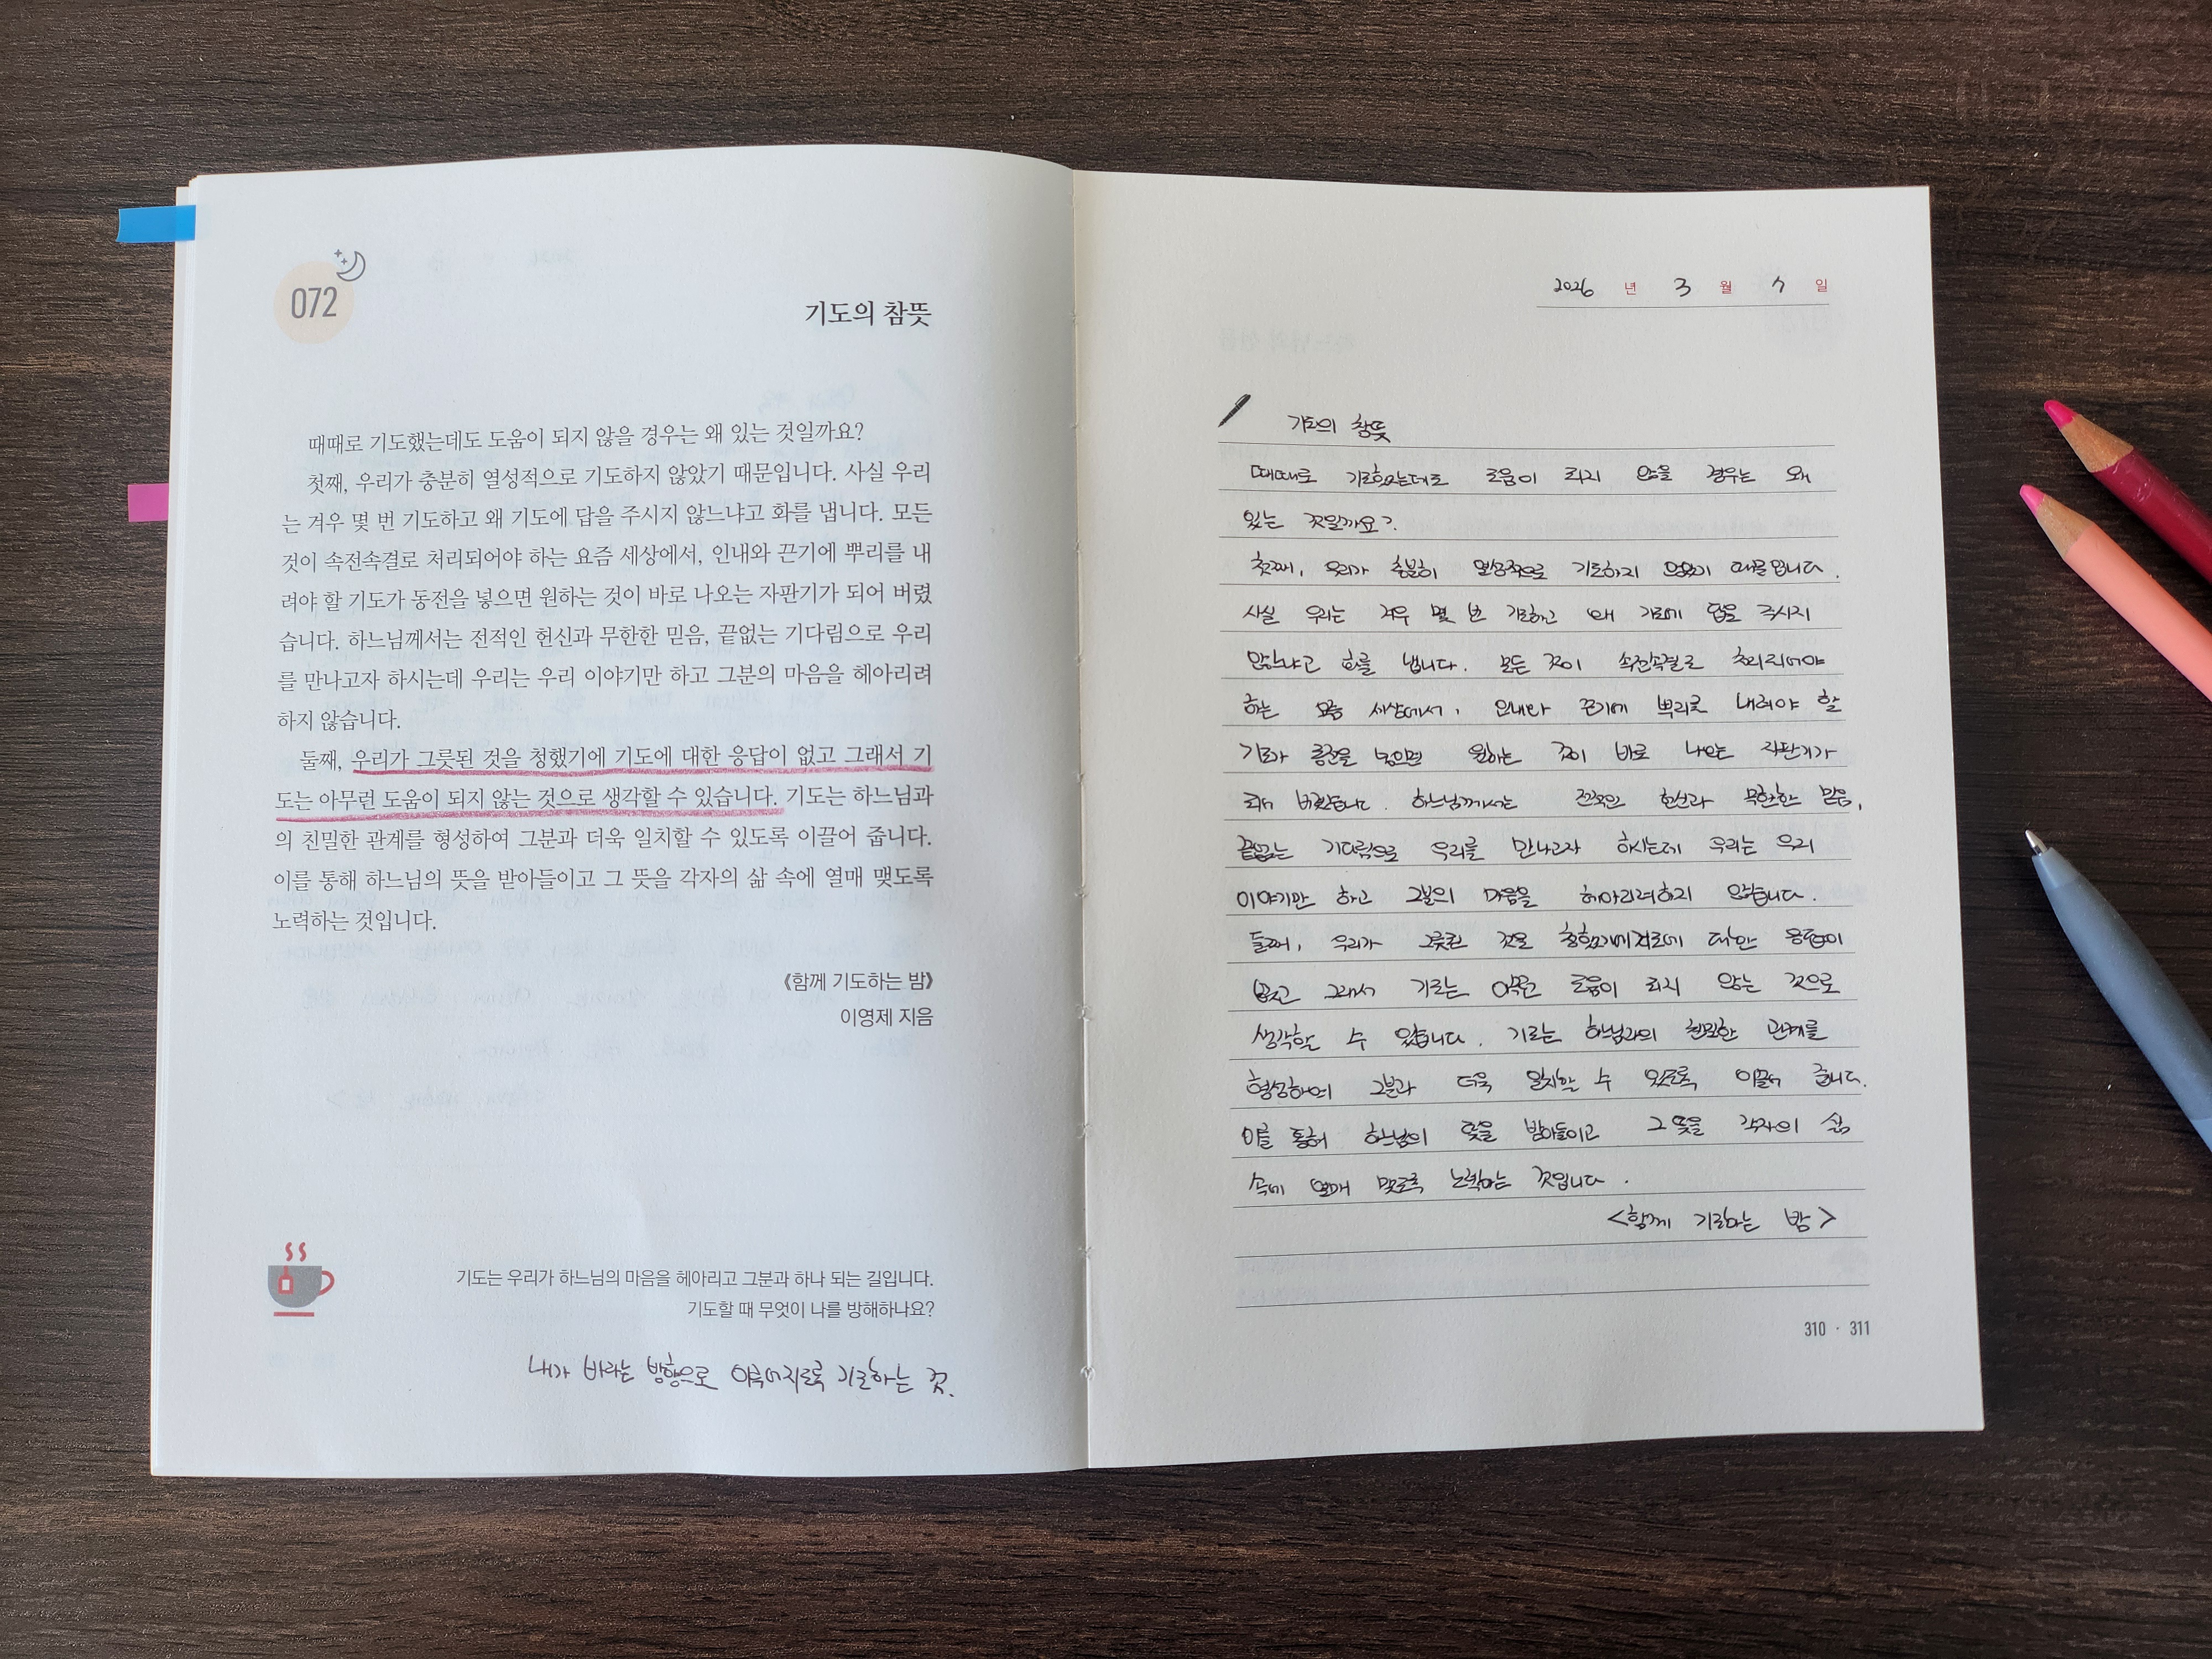 072
기도의 참뜻
때때로 기도했는데도 도움이 되지 않을 경우는 왜 있는 것일까요?
첫째, 우리가 충분히 열성적으로 기도하지 않았기 때문입니다. 사실 우리
는 겨우 몇 번 기도하고 왜 기도에 답을 주시지 않느냐고 화를 냅니다. 모든
것이 속전속결로 처리되어야 하는 요즘 세상에서, 인내와 끈기에 뿌리를 내
려야 할 기도가 동전을 넣으면 원하는 것이 바로 나오는 자판기가 되어 버렸
습니다. 하느님께서는 전적인 헌신과 무한한 믿음, 끝없는 기다림으로 우리
를 만나고자 하시는데 우리는 우리 이야기만 하고 그분의 마음을 헤아리려
하지 않습니다.
둘째, 우리가 그릇된 것을 청했기에 기도에 대한 응답이 없고 그래서 기
도는 아무런 도움이 되지 않는 것으로 생각할 수 있습니다. 기도는 하느님과
의 친밀한 관계를 형성하여 그분과 더욱 일치할 수 있도록 이끌어 줍니다.
이를 통해 하느님의 뜻을 받아들이고 그 뜻을 각자의 삶 속에 열매 맺도록
노력하는 것입니다.
《함께 기도하는 밤》
이영제 지음
기도는 우리가 하느님의 마음을 헤아리고 그분과 하나 되는 길입니다.
기도할 때 무엇이 나를 방해하나요?
내가 바라는 방향으로 이루어지도록 기도하는 것.
2026 년 3 월 7 일
기도의 참뜻
때때로 기도했는데도 도움이 되지 않을 경우는 왜
있는 것일까요?
첫째, 우리가 충분히 열성적으로 기도하지 않았기 때문입니다.
사실 우리는 겨우 몇 번 기도하고 왜 기도에 답을 주시지
않느냐고 화를 냅니다. 모든 것이 속전속결로 처리되어야
하는 요즘 세상에서, 인내와 끈기에 뿌리를 내려야 할
기도가 동전을 넣으면 원하는 것이 바로 나오는 자판기가
되어 버렸습니다. 하느님께서는 전적인 헌신과 무한한 믿음,
끝없는 기다림으로 우리를 만나고자 하시는데 우리는 우리
이야기만 하고 그분의 마음을 헤아리려하지 않습니다.
둘째, 우리가 그릇된 것을 청했기에 기도에 대한 응답이
없고 그래서 기도는 아무런 도움이 되지 않는 것으로
생각할 수 있습니다. 기도는 하느님과의 친밀한 관계를
형성하여 그분과 더욱 일치할 수 있도록 이끌어 줍니다.
이를 통해 하느님의 뜻을 받아들이고 그 뜻을 각자의 삶
속에 열매 맺도록 노력하는 것입니다.
<함께 기도하는 밤>
310 · 311